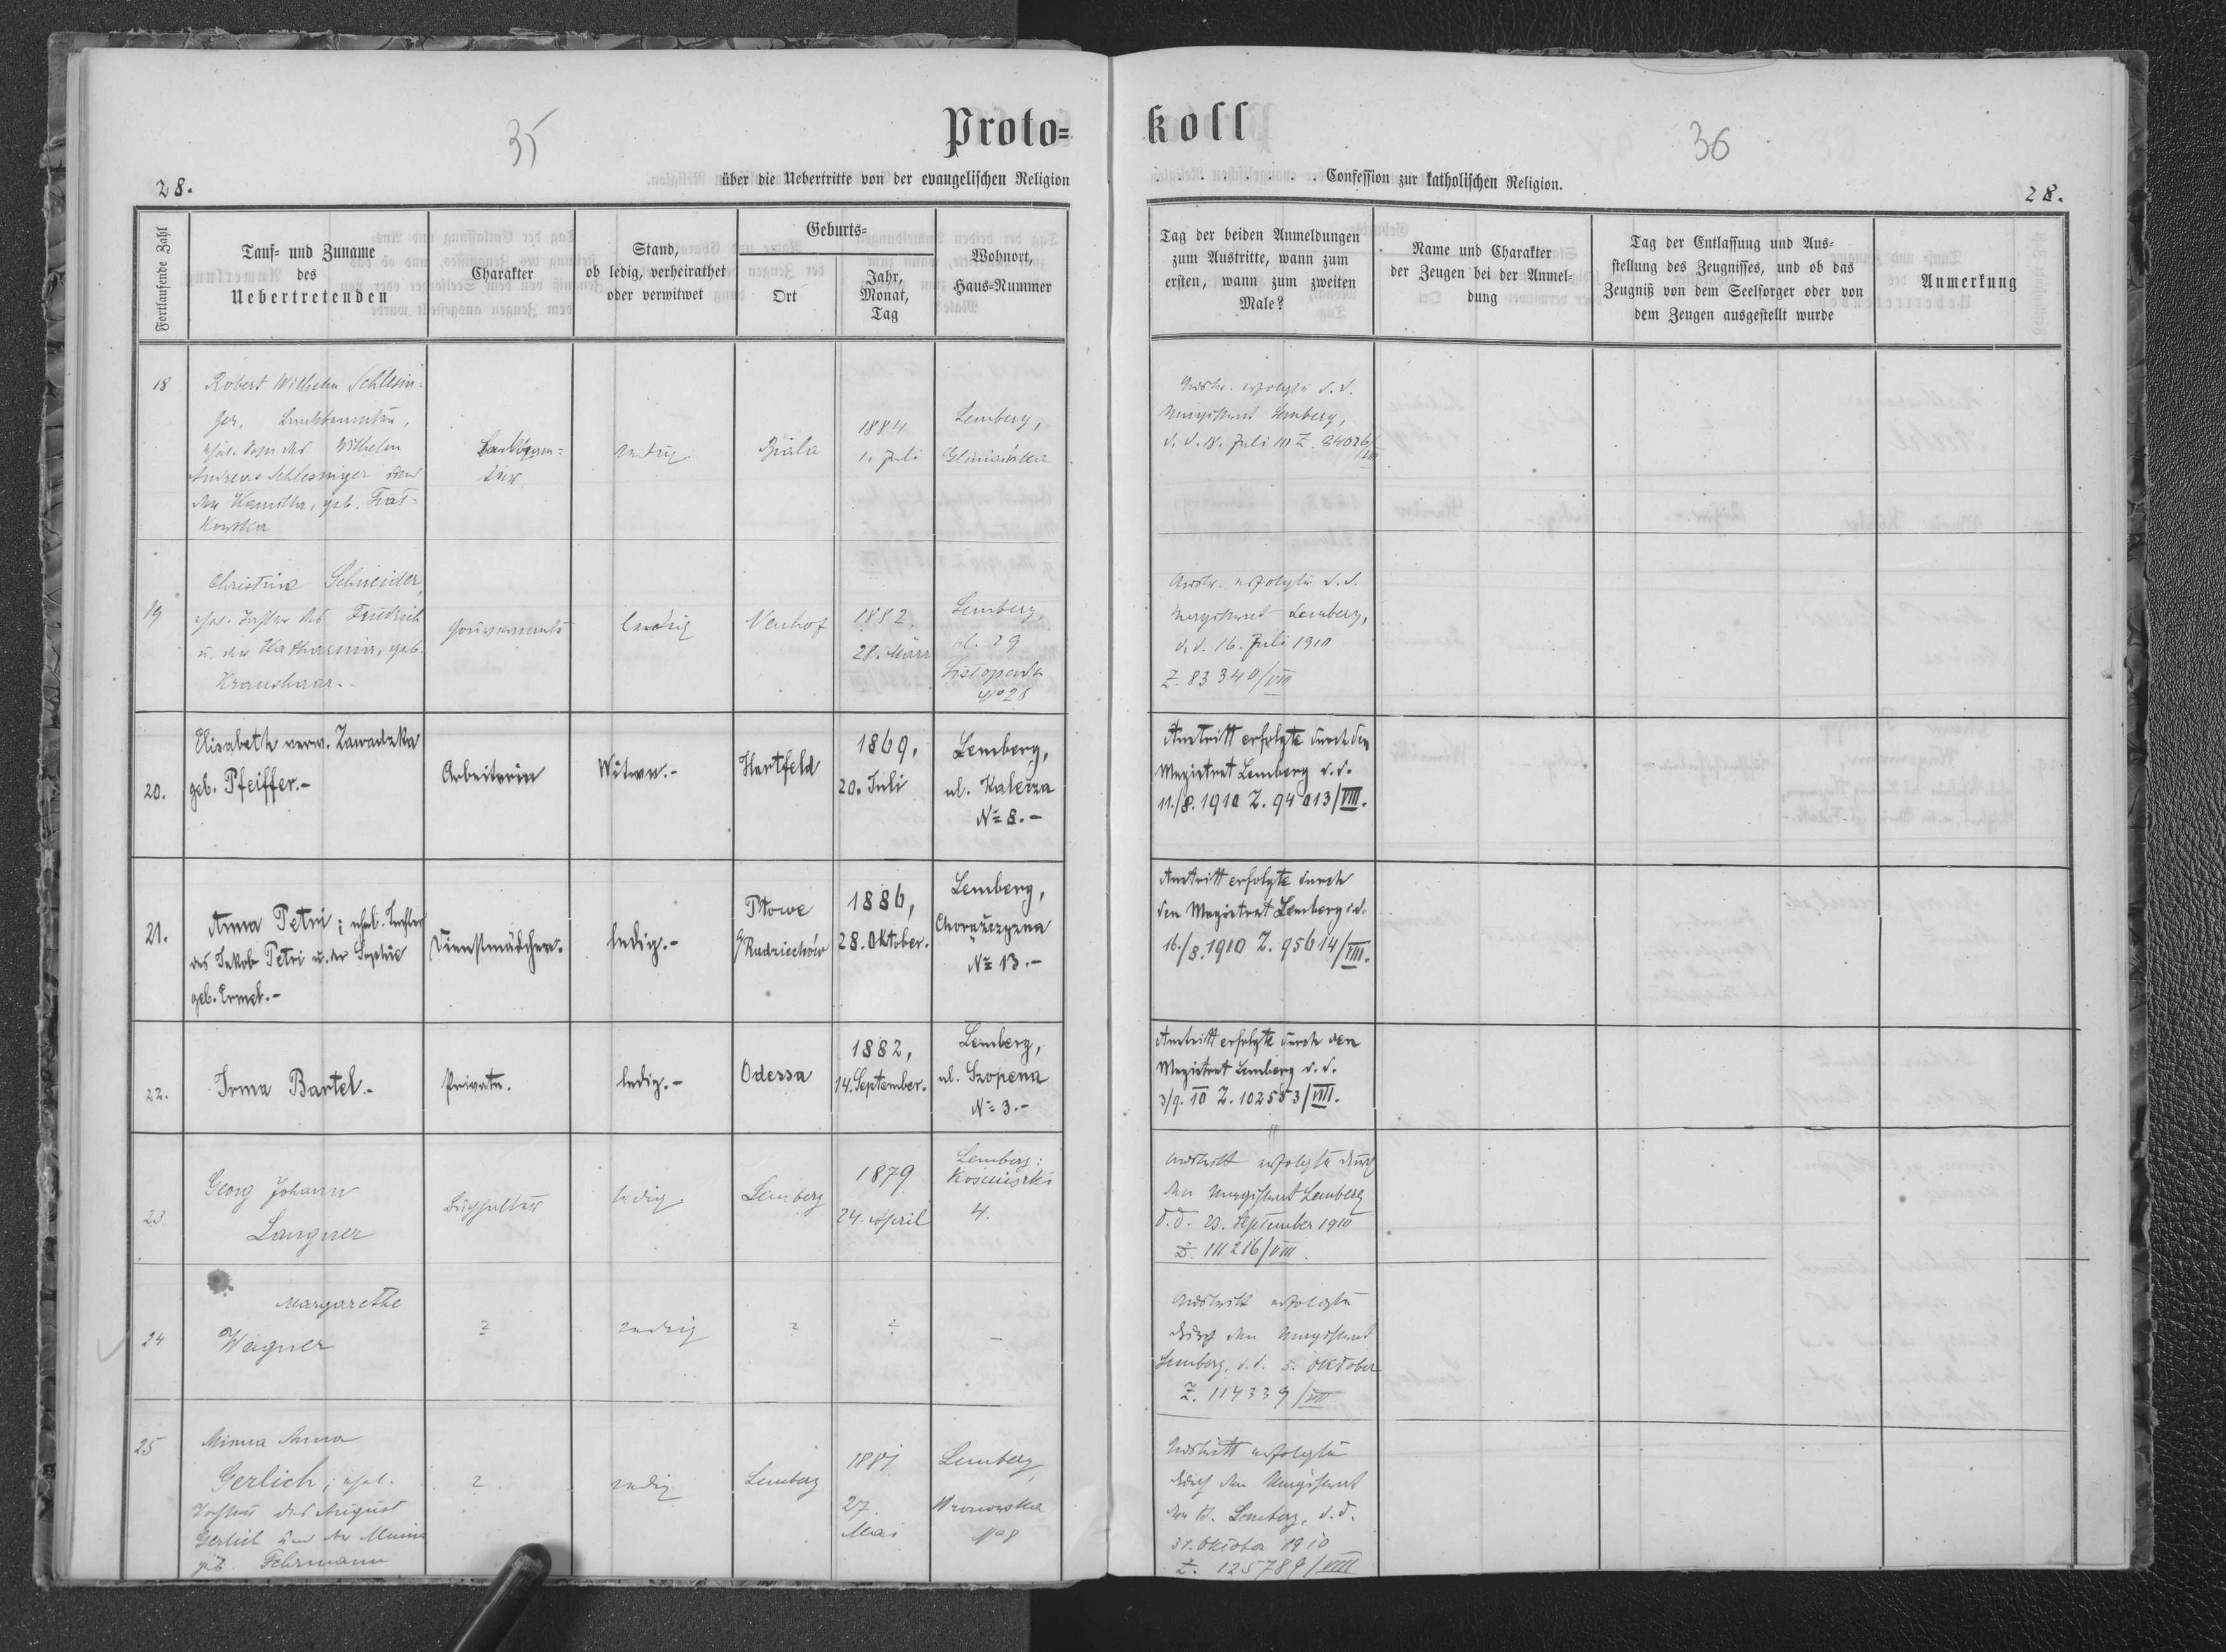 Proto=
koll
35
36
28.
über die Uebertritte von der evangelischen Religion
. . . . . . . . . Confession zur katholischen Religion.
28.
Fortlaufende Zahl
Tauf- und Zuname
des
Uebertretenden
Charakter
Stand,
ob ledig, verheirathet
oder verwitwet
Geburts=
Ort
Jahr,
Monat,
Tag
Wohnort,
Haus-Nummer
Tag der beiden Anmeldungen
zum Austritte, wann zum
ersten, wann zum zweiten
Male?
Name und Charakter
der Zeugen bei der Anmel-
dung
Tag der Entlassung und Aus-
stellung des Zeugnisses, und ob das
Zeugniß von dem Seelsorger oder von
dem Zeugen ausgestellt wurde
Anmerkung
18
Robert Wilhelm Schlesin-
ger,
Wilhelm
Andreas Schlesinger
geb.
ledig
Biala
1884
1. Juli
Lemberg,
Gliniańska
Austr. erfolgte d. d.
Magistrat Lemberg,
d. d. 18. Juli 1910 Z. 84026/VIII
19
Christine Schneider,
ehel. Tochter des Friedrich
u. der Katharina, geb.
Kraushaar.-
ledig
Neuhof
1882.
28. März
Lemberg,
ul. 29
Listopada
No 28
Austr. erfolgte d. d.
Magistrat Lemberg,
d. d. 16. Juli 1910
Z. 83340/VIII
20.
Elisabeth verw. Zawadzka
geb. Pfeiffer.-
Arbeiterin
Witwe.-
Hartfeld
1869,
20. Juli
Lemberg,
ul. Kalecza
No 8.-
Austritt erfolgte durch den
Magistrat Lemberg d. d.
11./8. 1910 Z. 94013/VIII.
21.
Anna Petri; ehel. Tochter
des Jakob Petri u. der Sophie
geb. Ermel.-
Dienstmädchen.
ledig.-
Ptowe
Radziechów
1886,
28. Oktober.
Lemberg,
Chorążczyzna
No 13.-
Austritt erfolgte durch
den Magistrat Lemberg d. d.
16./8. 1910 Z. 95614/VIII.
22.
Irma Bartel.-
Private.
ledig.-
Odessa
1882,
14. September.
Lemberg,
ul. Szopena
No 3.-
Austritt erfolgte durch den
Magistrat Lemberg d. d.
3/9. 10 Z. 102553/VIII.
23
Georg Johann
Langner
Buchhalter
ledig
Lemberg
1879
24. April
Lemberg:
Kosciuszki
4.
Austritt erfolgte durch
den Magistrat Lemberg
d. d. 23. September 1910
Z. 111216/VIII.
24
Margarethe
Wagner
?
ledig
?
?
-
Austritt erfolgte
durch den Magistrat
Lemberg, d. d. 3. Oktober
Z. 114339/VIII
25
Minna Anna
Gerlich; ehel.
Tochter des August
Gerlich und der Minna
geb. Fehrmann
?
ledig
Lemberg
1881
27.
Mai
Lemberg,
Wronowska
No 8
Austritt erfolgte
durch den Magistrat
Lemberg, d. d.
31. Oktober 1910
Z. 125789/VIII